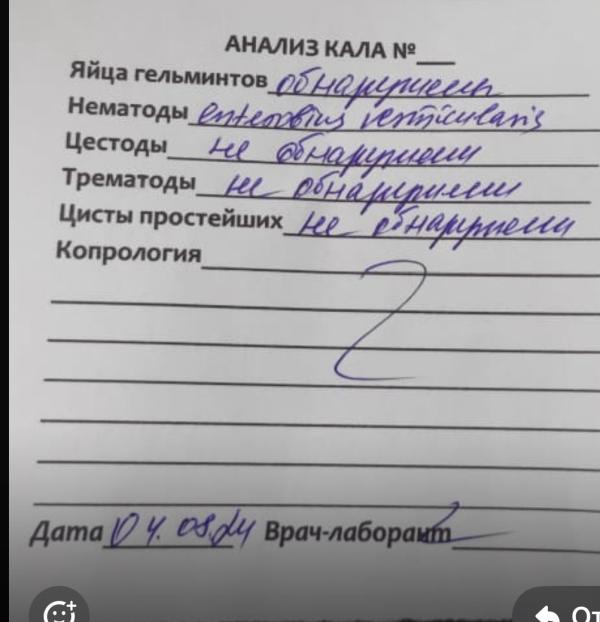 АНАЛИЗ КАЛА №
Яйца гельминтов обнаружены
Нематоды enterobius vermicularis
Цестоды не обнаружены
Трематоды не обнаружены
Цисты простейших не обнаружены
Копрология
Дата 04.08.24 Врач-лаборант
От